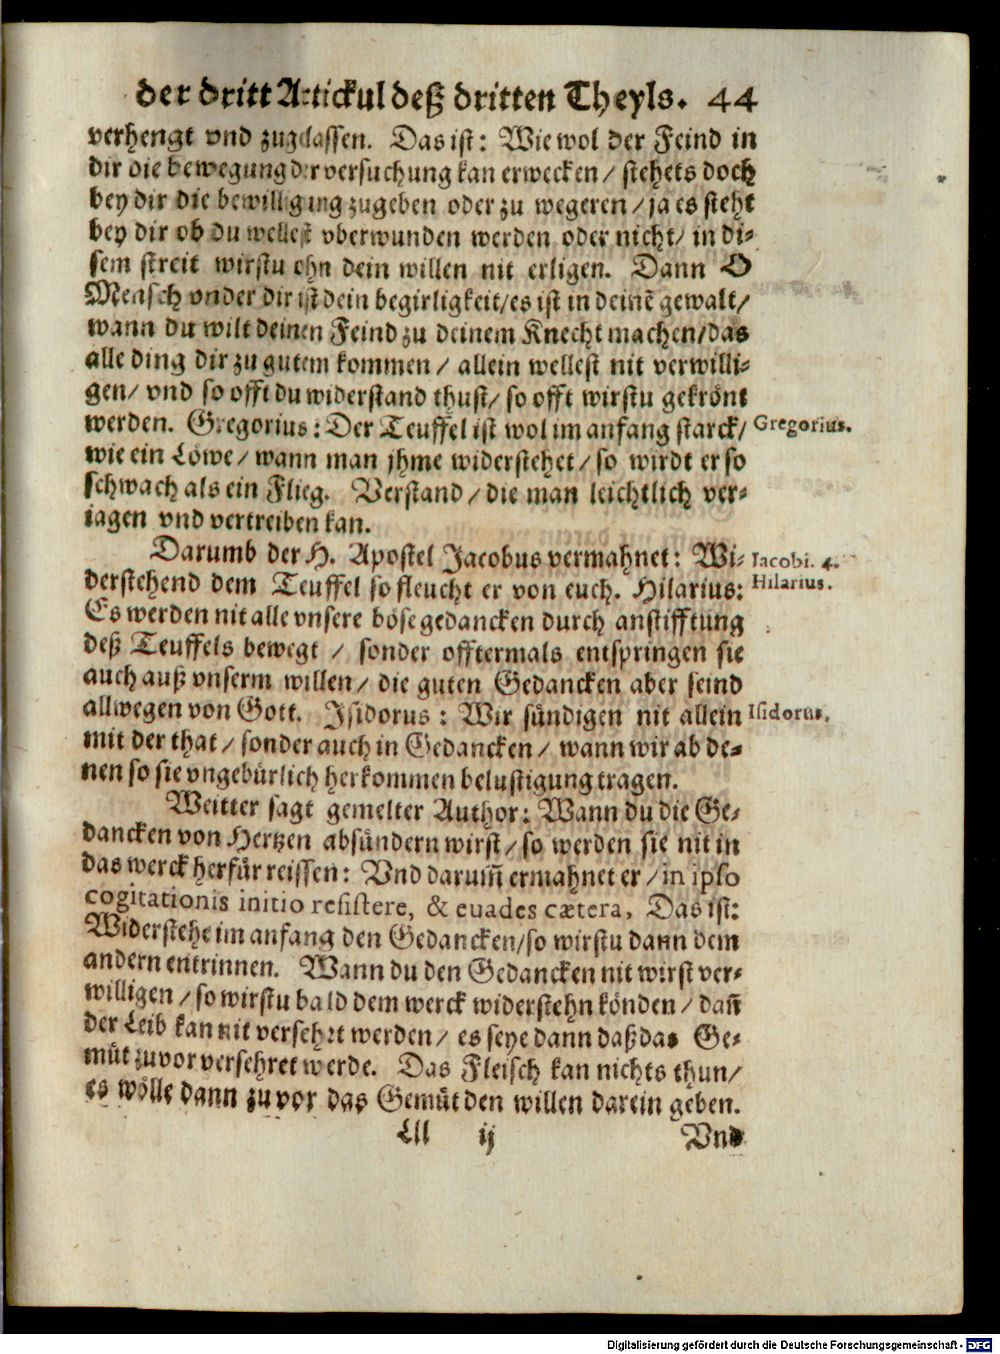 der dritt Artickul deß dritten Theyls. 44
verhengt vnd zugelassen. Das ist: Wiewol der Feind in
dir die bewegung der versuchung kan erwecken/ stehets doch
bey dir die bewilligung zugeben oder zu wegeren/ ja es steht
bey dir ob du wellest vberwunden werden oder nicht/ in di-
sem streit wirstu ohn dein willen nit erligen. Dann O
Mensch vnder dir ist dein begirligkeit/ es ist in deinē gewalt/
wann du wilt deinen Feind zu deinem Knecht machen/ das
alle ding dir zu gutem kommen/ allein wellest nit verwilli-
gen/ vnd so offt du widerstand thust/ so offt wirstu gekrönt
werden. Gregorius: Der Teuffel ist wol im anfang starck/
Gregorius.
wie ein Löwe/ wann man jhme widerstehet/ so wirdt er so
schwach als ein Flieg. Verstand/ die man leichtlich ver-
iagen vnd vertreiben kan.
Darumb der H. Apostel Jacobus vermahnet: Wi-
Iacobi. 4.
derstehend dem Teuffel so fleucht er von euch. Hilarius:
Hilarius.
Es werden nit alle vnsere böse gedancken durch anstifftung
deß Teuffels bewegt / sonder offtermals entspringen sie
auch auß vnserm willen/ die guten Gedancken aber seind
allwegen von Gott. Isidorus: Wir sündigen nit allein
Isidorus.
mit der that/ sonder auch in Gedancken/ wann wir ab de-
nen so sie vngebürlich herkommen belustigung tragen.
Weitter sagt gemelter Author: Wann du die Ge-
dancken von Hertzen absündern wirst/ so werden sie nit in
das werck herfür reissen: Vnd darum̄ ermahnet er/ in ipso
cogitationis initio resistere, & euades cætera, Das ist:
Widerstehe im anfang den Gedancken/ so wirstu dann dem
andern entrinnen. Wann du den Gedancken nit wirst ver-
willigen/ so wirstu bald dem werck widerstehn könden/ dan̄
der Leib kan nit versehrt werden/ es seye dann daß das Ge-
müt zuvor versehret werde. Das Fleisch kan nichts thun/
es wölle dann zuvor das Gemüt den willen darein geben.
Lll ij Vnd
Digitalisierung gefördert durch die Deutsche Forschungsgemeinschaft - DFG